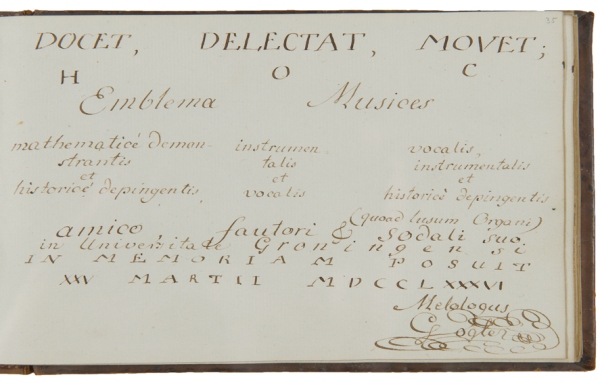 35
DOCET, DELECTAT, MOVET;
H O C
Emblema Musices
mathematicè demon- instrumen- vocalis,
strantis talis instrumentalis
et et et
historicè depingentis vocalis historicè depingentis
(quoad lusum Organi)
amico, fautori & Sodali suo
in Universitate Groningensi
IN MEMORIAM POSUIT
XXV MARTII MDCCLXXXVI
Melologus
G Vogler